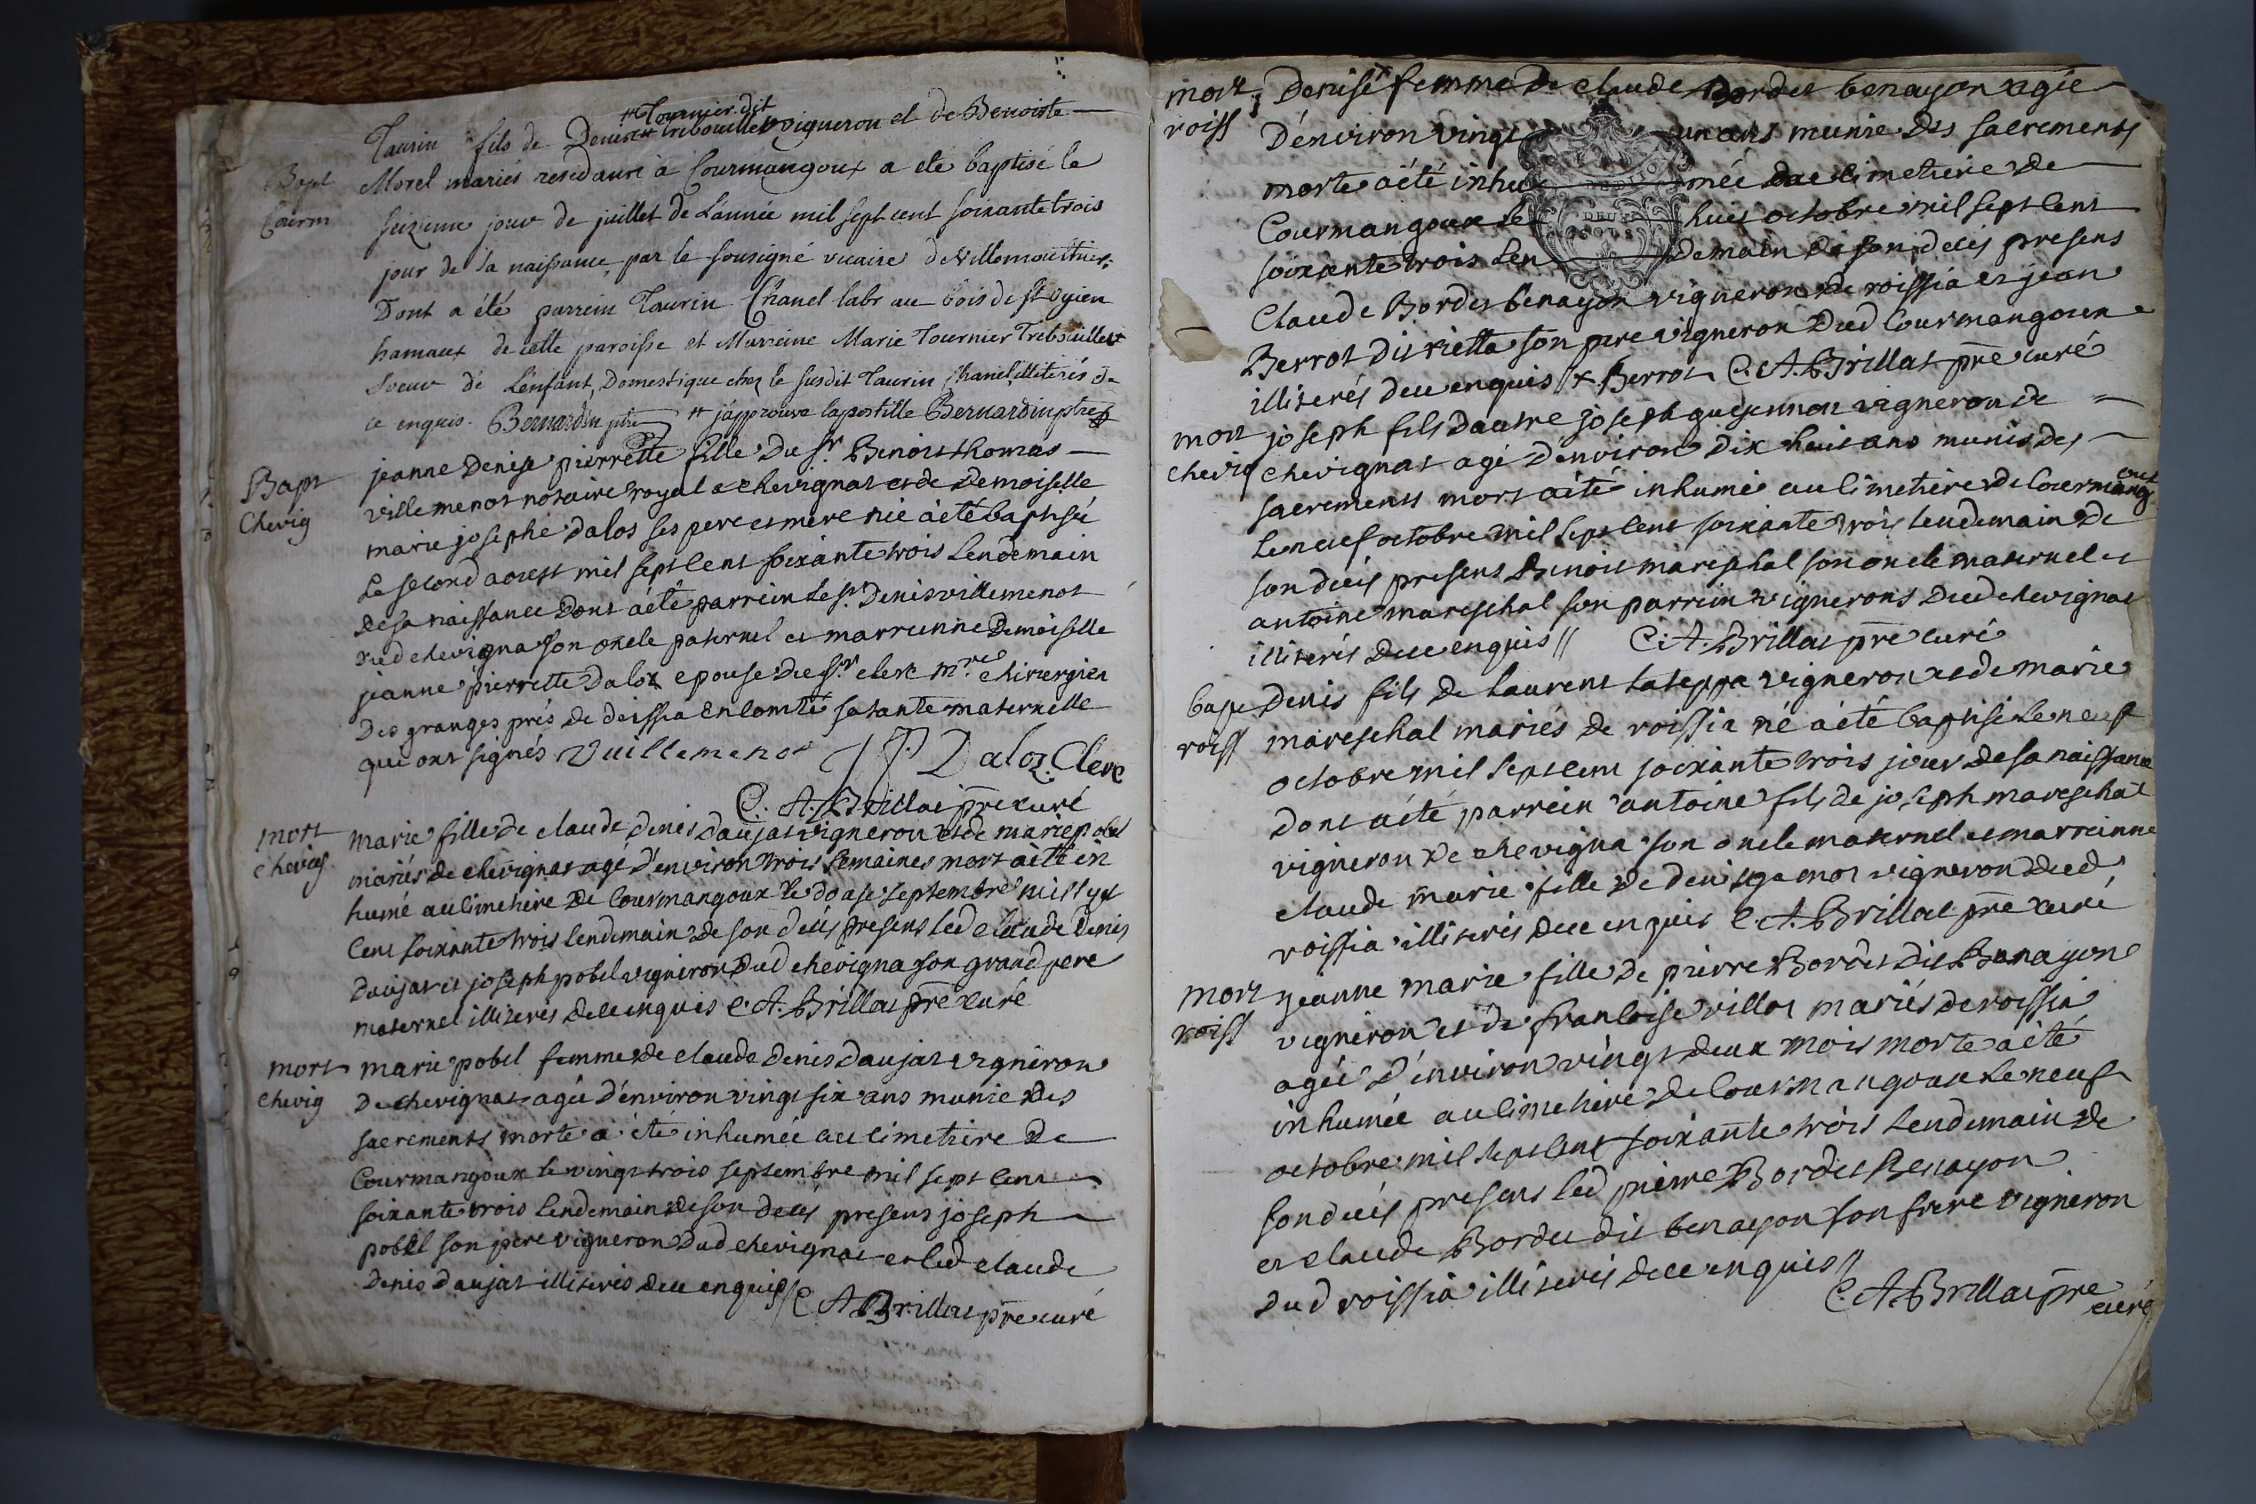 # Tournier dit
Taurin fils de Denis # tribouillet vigneron et de Benoiste
Bapt
Courm
Morel mariés residants à Courmangoux a été baptisé le
seizieme jour de juillet de l'année mil sept cent soixante trois
jour de sa naissance, par le sousigné vicaire de Villemoutier
Dont a été parrein Taurin Chanel labr au bois de st oyien
hameaux de cette paroisse et Marreine Marie Tournier Tribouillet
soeur de l'enfant, Domestique chez le susdit Taurin Chanel, illiterés de
ce enquis. Bernardin ptre # j'approuve l'apostille Bernardin ptre
Bapt
Chevig
jeanne Denise pierrette fille du sr Benoist thomas
villemenot notaire royal a chevignat et de Demoiselle
marie josephe Dalos ses pere et mere née a été baptisée
le second aoust mil sept cent soixante trois lendemain
de sa naissance dont a été parrein le sr Denis villemenot
dud chevigna son oncle paternel et marreinne Demoiselle
jeanne pierrette Daloz epouse du sr clerc mre chirurgien
des granges prés de deissia en comté sa tante maternelle
qui ont signés Vuillemenot JP Daloz Clerc
C. A. Brillat pre curé
mort
chevig
marie fille de claude denis Daujat vigneron et de marie pobel
mariés de chevignat agé d'environ trois semaines mort a été in
humé au cimetière de Courmangoux le douze septembre mil sept
cent soixante trois lendemain de son decés presens led claude denis
Daujat et joseph pobel vigneron dud chevigna son grand pere
maternel illiterés de ce enquis C. A. Brillat pre curé
mort
chevig
marie pobel femme de claude denis Daujat vigneron
de chevignat agée d'environ vingt six ans munie des
sacrements morte a été inhumée au cimetière de
Courmangoux le vingt trois septembre mil sept cent
soixante trois lendemain de son decés presens joseph
pobel son pere vigneron dud chevignat et led claude
denis Daujat illiterés de ce enquis // C A Brillat pre curé
mort
roiss
Denise femme de claude Bordes benayon agée
d'environ vingt un ans munie des sacrements
morte a été inhumée au cimetiere de
Courmangoux le huit octobre mil sept cent
soixante trois lendemain de son decés presens
Claude Bordes benayon vigneron de roissia et jean
Berrot dit rietta son pere vigneron dud Courmangoux
illiterés de ce enquis // + Berrot C. A. Brillat pre curé
mort
chevig
joseph fils d'autre joseph guyennon vigneron de
chevignat agé d'environ dix huit ans munis des
sacrements mort a été inhumé au cimetiere de Courmangoux
le neuf octobre mil sept cent soixante trois lendemain de
son decés presens Benoit mareschal son oncle maternel et
antoine mareschal son parrein vignerons dud chevignat
illiterés de ce enquis // C. A. Brillat pre curé
bapt
roiss
Denis fils de laurent tateppa vigneron et de marie
mareschal mariés de roissia né a été baptisé le neuf
octobre mil sept cent soixante trois jour de sa naissance
dont a été parrein antoine fils de joseph mareschal
vigneron de chevigna son oncle maternel et marreinne
claude marie fille de denis gamot vigneron dud
roissia illiterés de ce enquis C. A. Brillat pre curé
mort
roiss
jeanne marie fille de pierre Bordes dit Banayon
vigneron et de francoise villot mariés de roissia
agée d'environ vingt deux mois morte a été
inhumée au cimetière de Courmangoux le neuf
octobre mil sept cent soixante trois lendemain de
son decés presens led pierre Bordes Benayon
et claude Bordes dit benayon son frere vigneron
dud roissia illiterés de ce enquis //
C. A. Brillat pre
curé
DEUX
SOLS